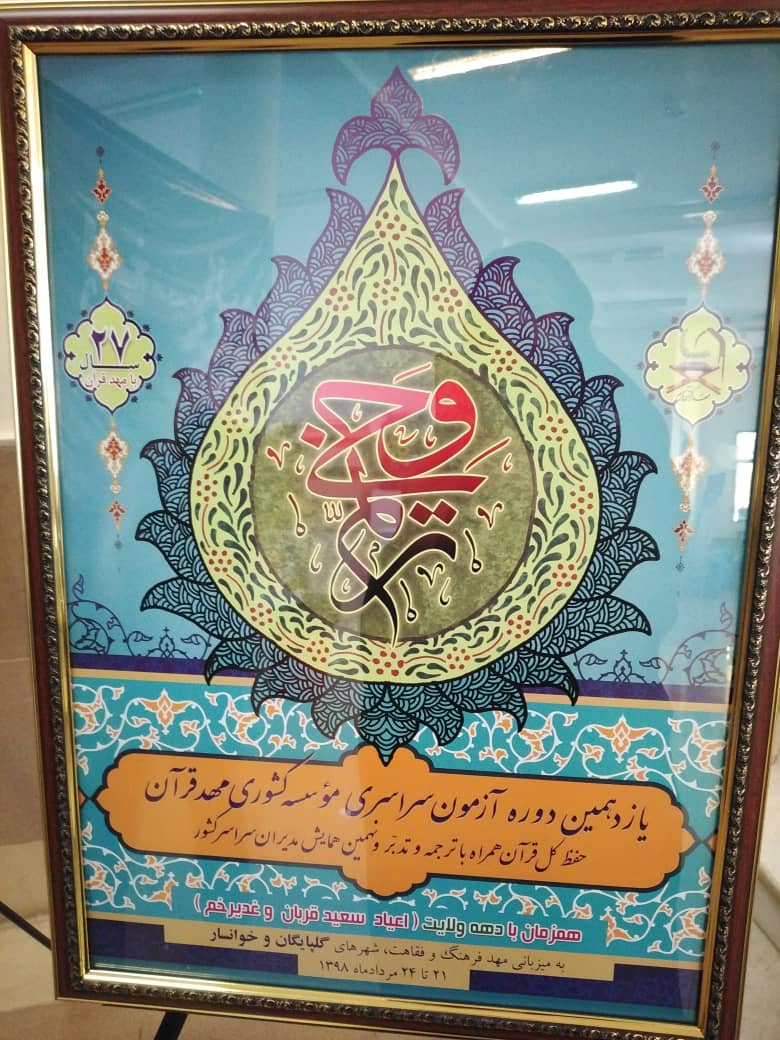 ۲۷
سال
با مهد قرآن
وحی
یازدهمین دوره آزمون سراسری مؤسسه کشوری مهد قرآن
حفظ کل قرآن همراه با ترجمه و تدبّر و نهمین همایش مدیران سراسر کشور
همزمان با دهه ولایت ( اعیاد سعید قربان و غدیر خم )
به میزبانی مهد فرهنگ و فقاهت، شهرهای گلپایگان و خوانسار
۲۱ تا ۲۴ مردادماه ۱۳۹۸